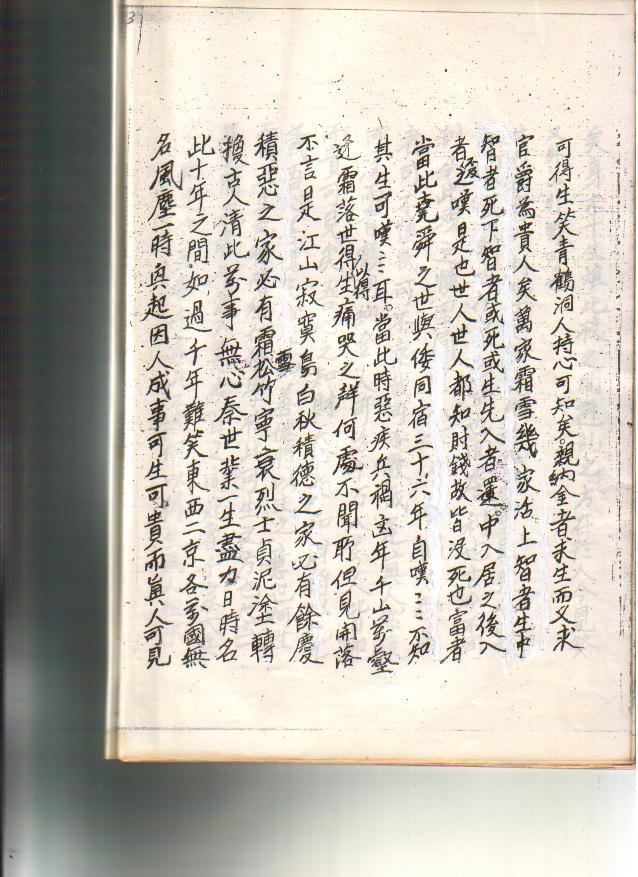 3
可得生笑青鶴洞人持心可知矣親納金者求生而又求
官爵爲貴人矣萬家霜雪幾家活上智者生中
智者死下智者或死或生先入者還中入居之後入
者還嘆是也世人世人都知財錢故皆沒死也富者
當此堯舜之世與倭同宿三十六年自嘆ミミ不知
其生可嘆ミミ耳當此時惡疾兵禍這年千山萬壑
逢霜落世得以得生痛哭之聲何處不聞耶但見開落
不言是江山寂寞島白秋積德之家必有餘慶
積惡之家必有霜雪松竹寧哀烈士貞泥塗轉
換古人清此萬事無心秦世業一生盡力日時名
此十年之間如過千年難笑東西二京各萬國無
名風塵一時興起因人成事可生可貴而眞人可見